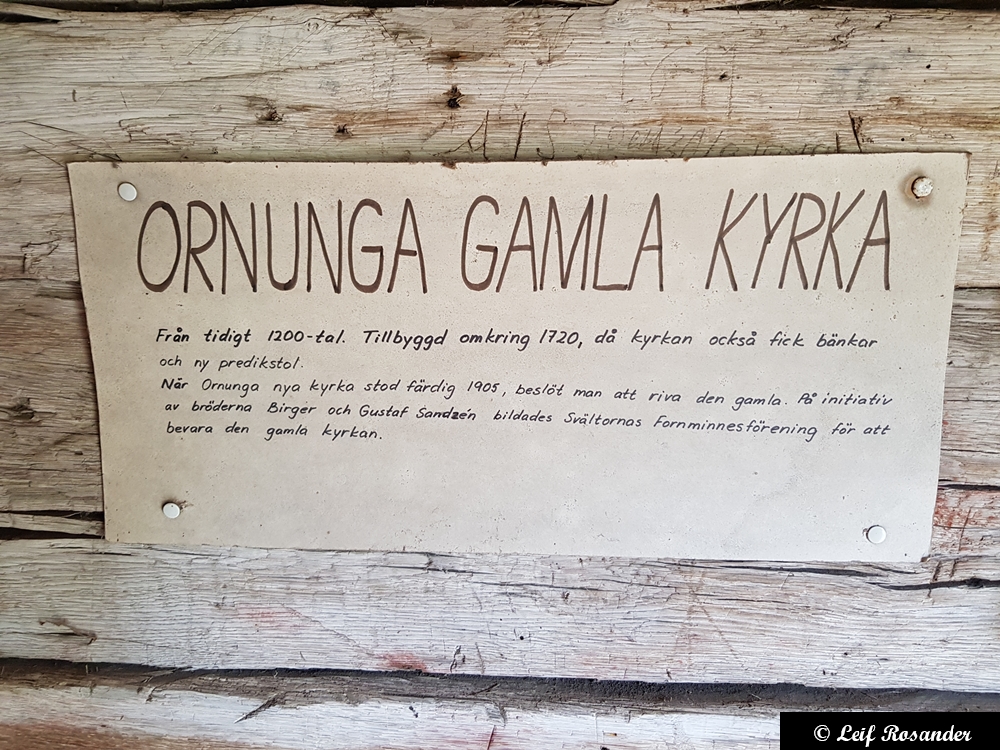 ORNUNGA GAMLA KYRKA
Från tidigt 1200-tal. Tillbyggd omkring 1720, då kyrkan också fick bänkar
och ny predikstol.
När Ornunga nya kyrka stod färdig 1905, beslöt man att riva den gamla. På initiativ
av bröderna Birger och Gustaf Sandzén bildades Svältornas Fornminnesförening för att
bevara den gamla kyrkan.
© Leif Rosander